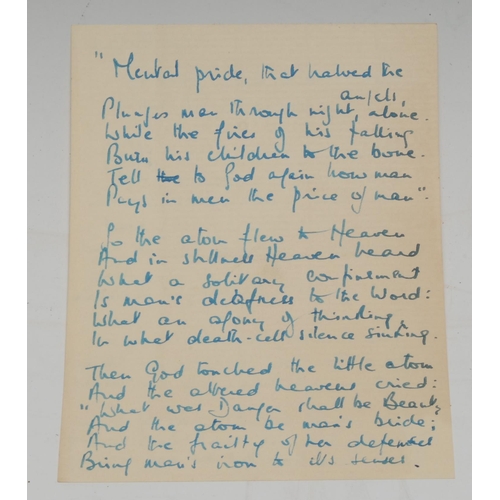 "Mental pride, that halved the
angels,
Plunges man through night, alone.
While the fires of his falling
Burn his children to the bone.
Tell to God again how man
Pays in men the price of man".
So the atom flew to Heaven
And in stillness Heaven heard
What a solitary confinement
Is man's deafness to the Word:
What an agony of thinking,
In what death-cell silence sinking.
Then God touched the little atom
And the altered heavens cried:
"What was Danger shall be Beauty,
And the atom be man's bride;
And the frailty of her defences
Bring man's iron to its senses.